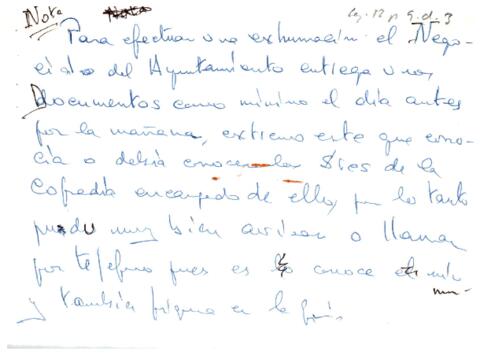 Nota
Para efectuar una exhumación el Nego-
ciado del Ayuntamiento entrega unos
Documentos como mínimo el día antes
por la mañana, extremo este que cono-
cía o debía conocer los Sres de la
Cofradía encargado de ello, por lo tanto
pudu muy bien avisar o llamar
por teléfono pues es conoce el
y también figura en la